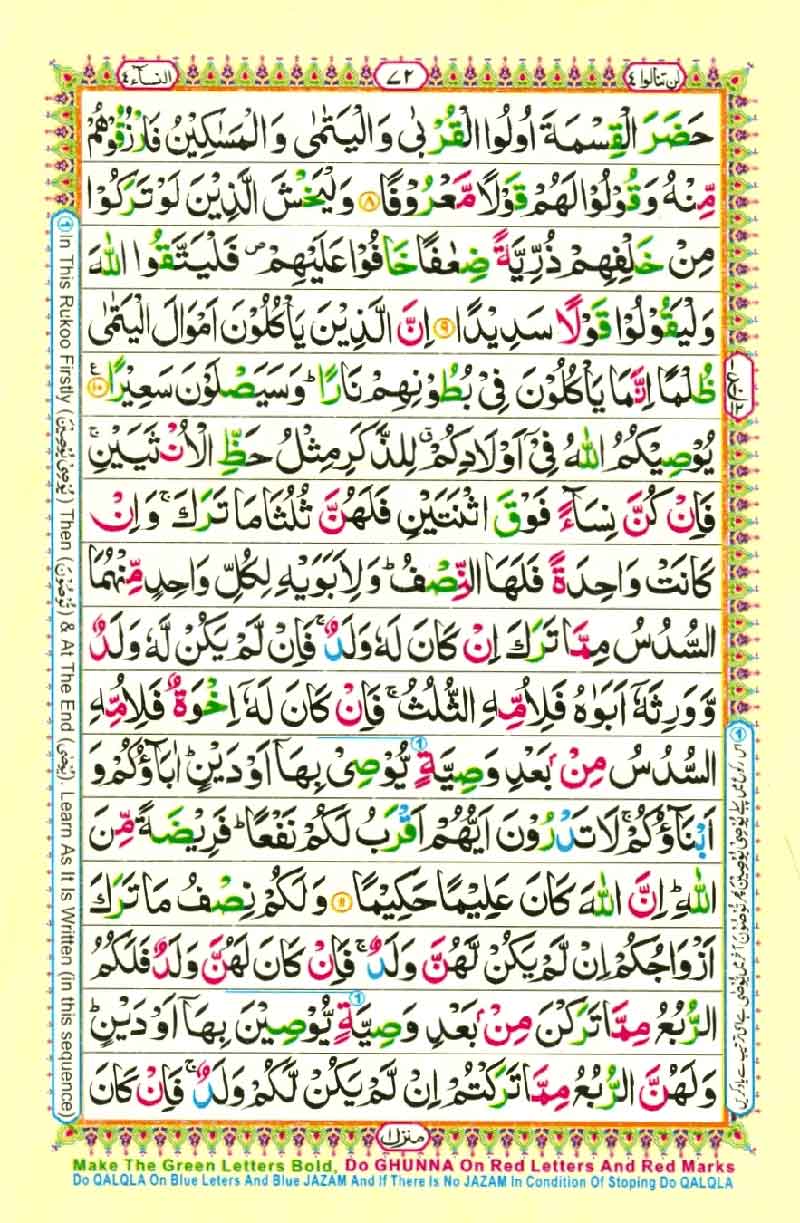 لن تنالوا ٤
٧٢
النسآء ٤
حَضَرَ الْقِسْمَةَ اُولُوا الْقُرْبٰى وَالْيَتٰمٰى وَالْمَسٰكِيْنُ فَارْزُقُوْهُمْ
مِّنْهُ وَقُوْلُوْا لَهُمْ قَوْلًا مَّعْرُوْفًا ﴿۸﴾ وَلْيَخْشَ الَّذِيْنَ لَوْ تَرَكُوْا
مِنْ خَلْفِهِمْ ذُرِّيَّةً ضِعٰفًا خَافُوْا عَلَيْهِمْ ۖ فَلْيَتَّقُوا اللّٰهَ
وَلْيَقُوْلُوْا قَوْلًا سَدِيْدًا ﴿۹﴾ اِنَّ الَّذِيْنَ يَاْكُلُوْنَ اَمْوَالَ الْيَتٰمٰى
ظُلْمًا اِنَّمَا يَاْكُلُوْنَ فِيْ بُطُوْنِهِمْ نَارًا ؕ وَسَيَصْلَوْنَ سَعِيْرًا ﴿۱۰﴾ ع
يُوْصِيْكُمُ اللّٰهُ فِيْٓ اَوْلَادِكُمْ ۗ لِلذَّكَرِ مِثْلُ حَظِّ الْاُنْثَيَيْنِ ۚ
فَاِنْ كُنَّ نِسَآءً فَوْقَ اثْنَتَيْنِ فَلَهُنَّ ثُلُثَا مَا تَرَكَ ۚ وَاِنْ
كَانَتْ وَاحِدَةً فَلَهَا النِّصْفُ ؕ وَلِاَبَوَيْهِ لِكُلِّ وَاحِدٍ مِّنْهُمَا
السُّدُسُ مِمَّا تَرَكَ اِنْ كَانَ لَهٗ وَلَدٌ ۚ فَاِنْ لَّمْ يَكُنْ لَّهٗ وَلَدٌ
وَّوَرِثَهٗٓ اَبَوٰهُ فَلِاُمِّهِ الثُّلُثُ ۚ فَاِنْ كَانَ لَهٗٓ اِخْوَةٌ فَلِاُمِّهِ
السُّدُسُ مِنْۢ بَعْدِ وَصِيَّةٍ يُّوْصِيْ بِهَآ اَوْ دَيْنٍ ؕ اٰبَآؤُكُمْ وَ
اَبْنَآؤُكُمْ ۚ لَا تَدْرُوْنَ اَيُّهُمْ اَقْرَبُ لَكُمْ نَفْعًا ؕ فَرِيْضَةً مِّنَ
اللّٰهِ ؕ اِنَّ اللّٰهَ كَانَ عَلِيْمًا حَكِيْمًا ﴿۱۱﴾ وَلَكُمْ نِصْفُ مَا تَرَكَ
اَزْوَاجُكُمْ اِنْ لَّمْ يَكُنْ لَّهُنَّ وَلَدٌ ۚ فَاِنْ كَانَ لَهُنَّ وَلَدٌ فَلَكُمُ
الرُّبُعُ مِمَّا تَرَكْنَ مِنْۢ بَعْدِ وَصِيَّةٍ يُّوْصِيْنَ بِهَآ اَوْ دَيْنٍ ؕ
وَلَهُنَّ الرُّبُعُ مِمَّا تَرَكْتُمْ اِنْ لَّمْ يَكُنْ لَّكُمْ وَلَدٌ ۚ فَاِنْ كَانَ
منزل ١
① In This Rukoo Firstly (يُوْصِيْ يُوْصِيْنَ) Then (تُوْصُوْنَ) & At The End (يُوْصٰى). Learn As It Is Written (in this sequence)
Make The Green Letters Bold, Do GHUNNA On Red Letters And Red Marks
Do QALQLA On Blue Leters And Blue JAZAM And If There Is No JAZAM In Condition Of Stoping Do QALQLA